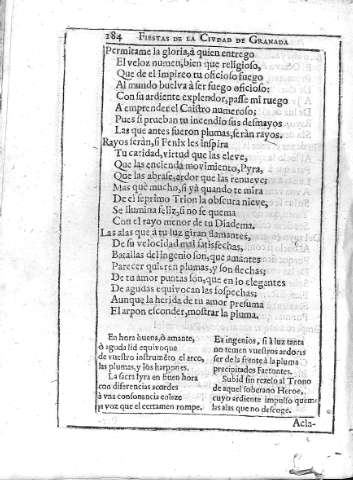 184 FIESTAS DE LA CIVDAD DE GRANADA
Permitame la gloria, à quien entrego
El veloz numen, bien que religioso,
Que de el Impireo tu oficioso fuego
Al mundo buelva à ser fuego oficioso:
Con su ardiente explendor, passe mi ruego
A emprender el Caistro numeroso;
Pues si prueban tu incendio sus desmayos
Las que antes fueron plumas, seràn rayos.
Rayos seràn, si Fenix les inspira
Tu caridad, virtud que las eleve,
Que las encienda movimiento, Pyra,
Que las abrase, ardor que las renueve;
Mas què mucho, si yà quando te mira
De el septimo Trion la obscura nieve,
Se ilumina feliz, si no se quema
Con el rayo menor de tu Diadema.
Las alas que à tu luz giran flamantes,
De su velocidad mal satisfechas,
Batallas del ingenio son, que amantes
Parecer quieren plumas, y son flechas;
De tu amor puntas son, que en lo elegantes
De agudas equivocan las sospechas;
Aunque la herida de tu amor presuma
El arpon esconder, mostrar la pluma.
En hora buena, ò amante,
ò aguda lid equivoque
de vuestro instrumẽto el arco,
las plumas, y los harpones.
La sacra lyra en buen hora
con diferencias acordes
à vna consonancia enlaze
la voz que el certamen rompe.
Ex ingenios, si à luz tanta
no temen vuestros ardores
ser de la frente à la pluma
precipitados Faetontes.
Subid sin rezelo al Trono
de aquel soberano Heroe,
cuyo ardiente impulso quema
las alas que no descoge.
Acla-